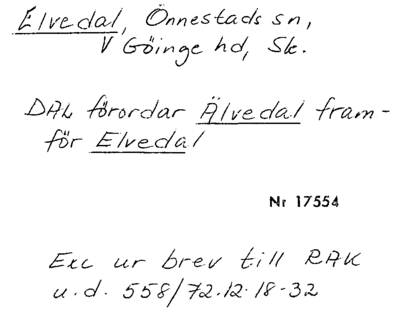 Elvedal, Önnestads sn,
V Göinge hd, Sk.
DAL förordar Älvedal fram-
för Elvedal
Nr 17554
Exc ur brev till RAK
u.d. 558/72.12.18-32